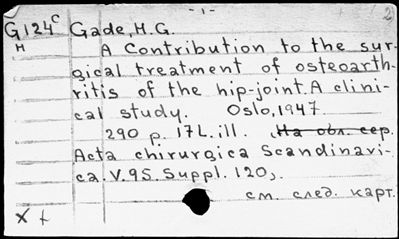 - 1 -
2
G124c Gade, H.G.
H
A Contribution to the sur-
gical treatment of osteoarth-
ritis of the hip-joint. A clini-
cal study. Oslo, 1947.
290 p. 17L. ill. На обл. сер.
Acta chirurgica Scandinavi-
ca. V. 95. Suppl. 120,.
см. след. карт.
X t